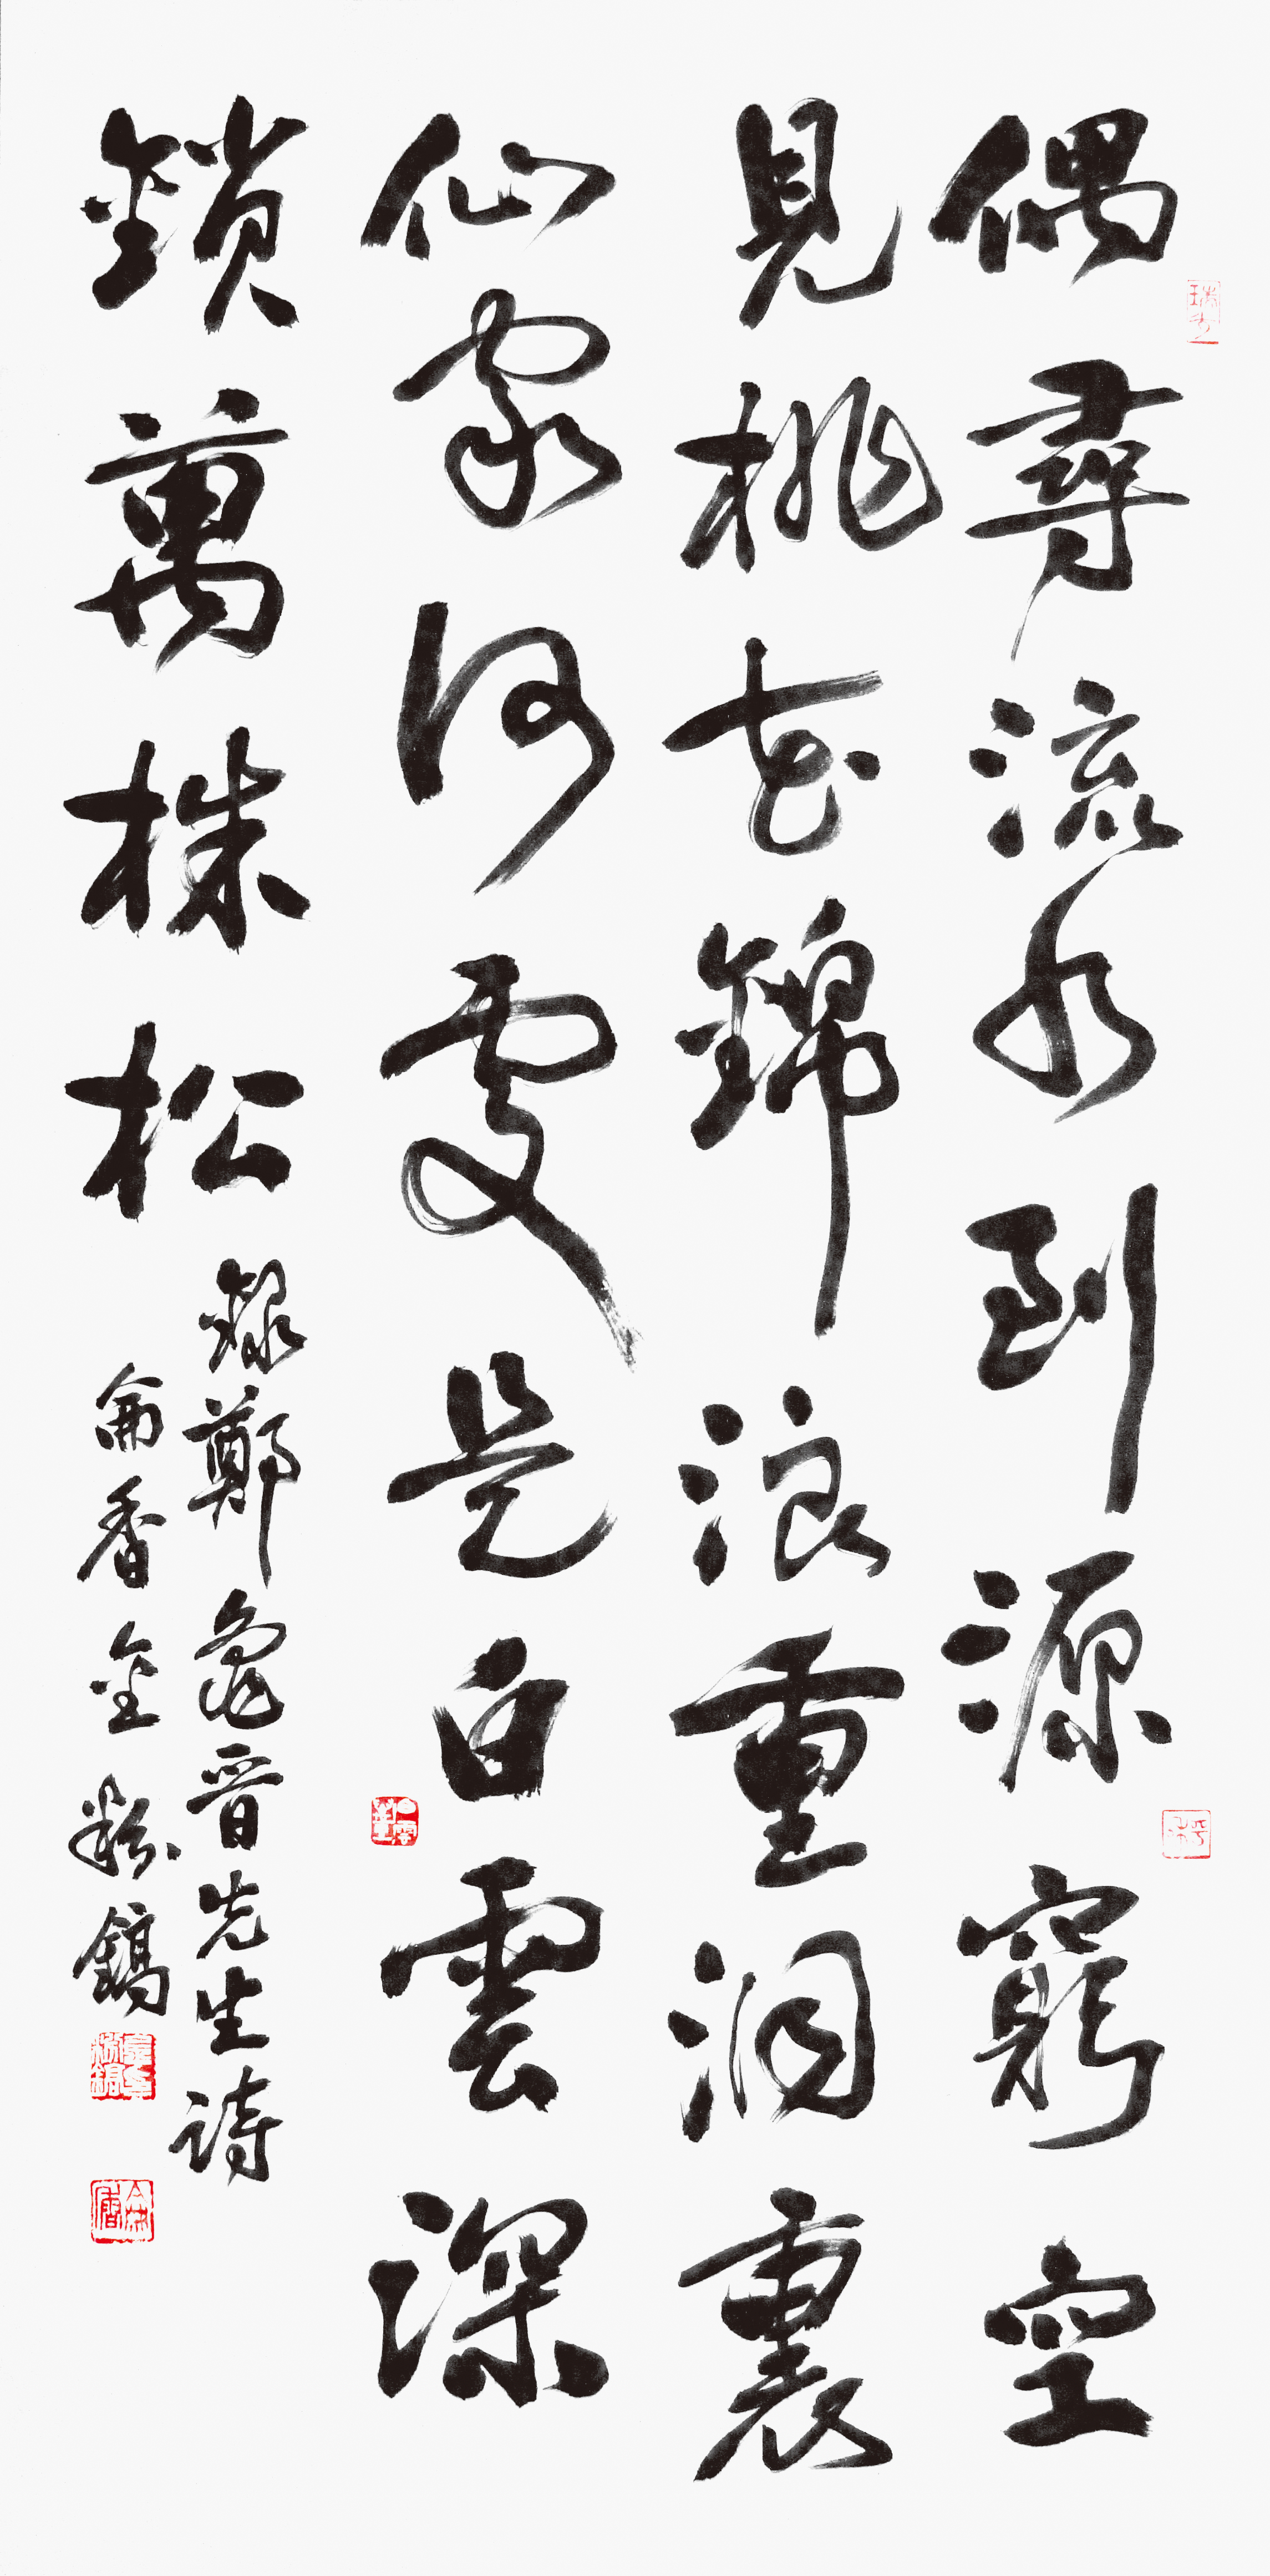 偶尋流水到源窮空
見桃花錦浪重洞裏
仙家何處是白雲深
鎖萬株松
錄鄭龜晉先生詩
侖香金粉鎬